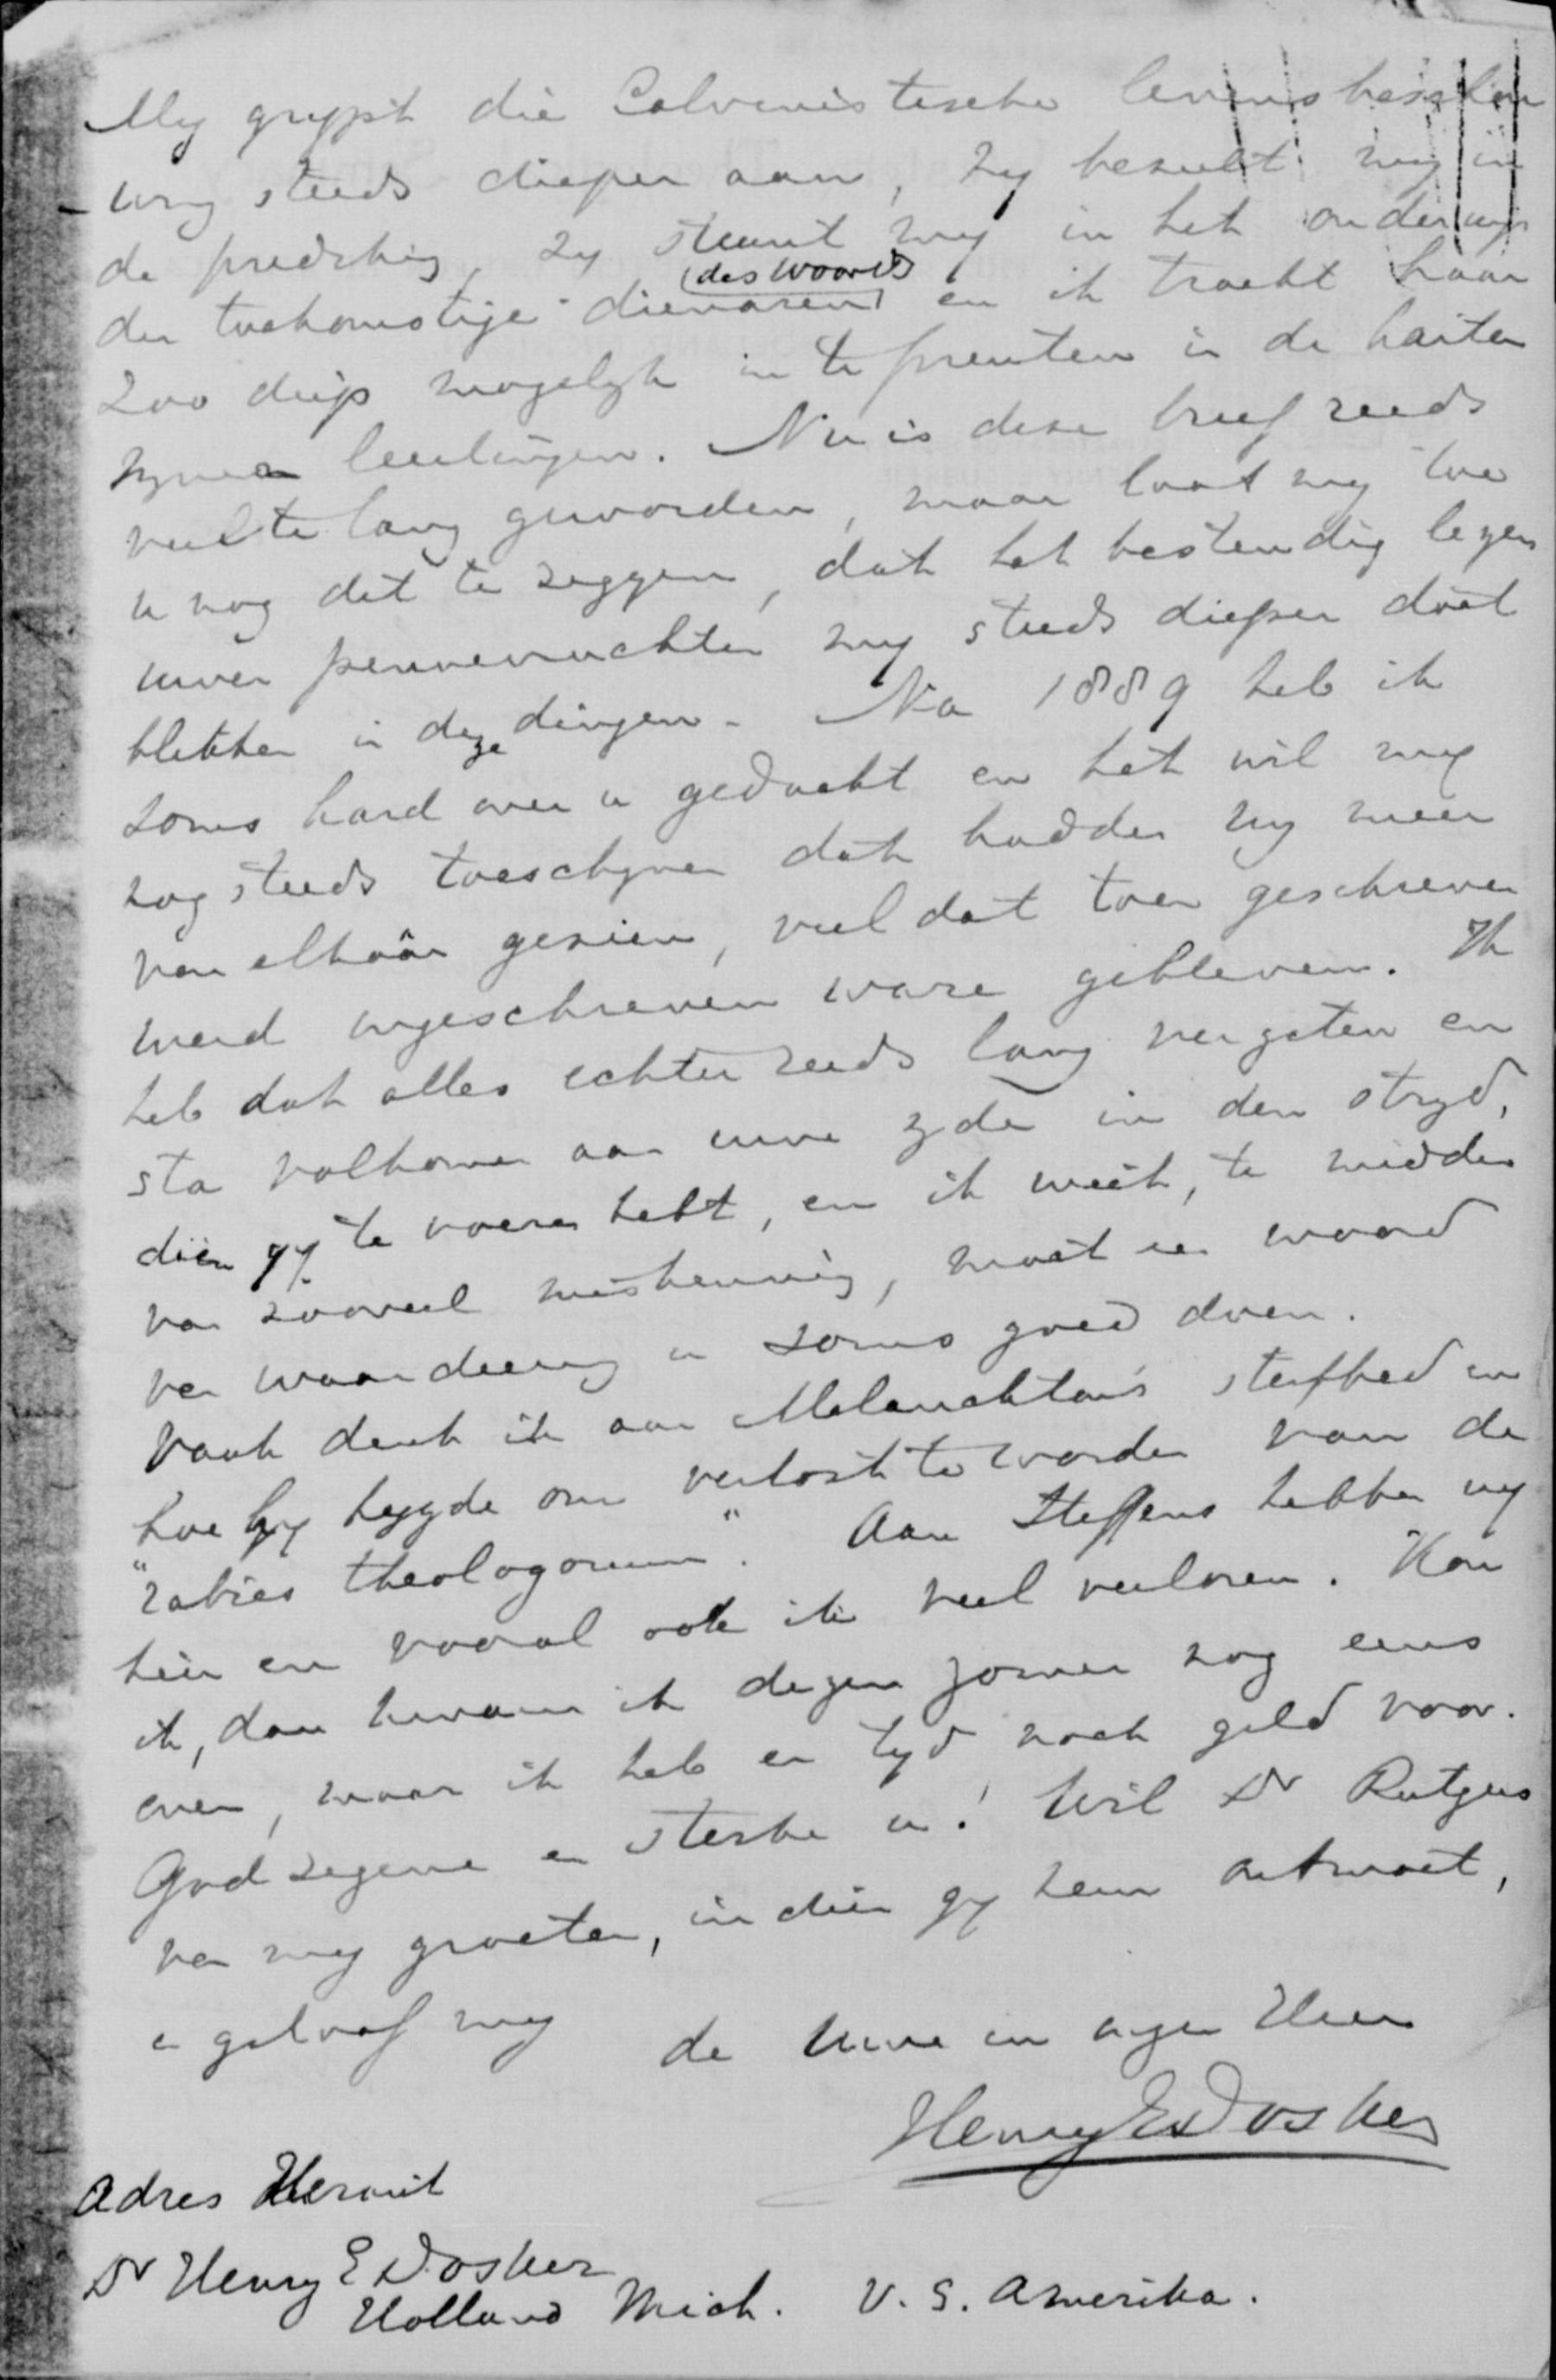 My grypt die Calvinistische levensbeschou
wing steeds dieper aan, zy bezielt my in
de prediking, zy steunt my in het onderwys
der toekomstige dienaren (des Woords) en ik tracht haar
zoo diep mogelyk in te prenten in de harten
myner leerlingen. Nu is deze brief reeds
veel te lang geworden, maar laat my toe
u nog dit te zeggen, dat het bestendig lezen
uwer pennevruchten my steeds dieper doet
blikken in deze dingen. Na 1889 heb ik
soms hard over u gedacht en het wil my
nog steeds toeschynen dat hadden wy meer
van elkaâr gezien, veel dat toen geschreven
werd ongeschreven ware gebleven. Ik
heb dat alles echter reeds lang vergeten en
sta volkomen aan uwe zyde in den stryd,
dien gy te voeren hebt, en ik weet, te midden
van zooveel miskenning, moet een woord
van waardeering u soms goed doen.
Vaak denk ik aan Melanchton's sterfbed en
hoe hy hygde om verlost te worden van de
"rabies theologorum". Aan Steffens hebben wy
hier en vooral ook ik veel verloren. Kon
ik, dan kwam ik dezen zomer nog eens
over, maar ik heb er tyd noch geld voor.
God zegene en sterke u! Wil Dr Rutgers
van my groeten, indien gy hem ontmoet,
en geloof my
de Uwe in onzen Heer
Henry E Dosker
Adres Hermit
Dr Henry E Dosker
Holland Mich. V. S. Amerika.